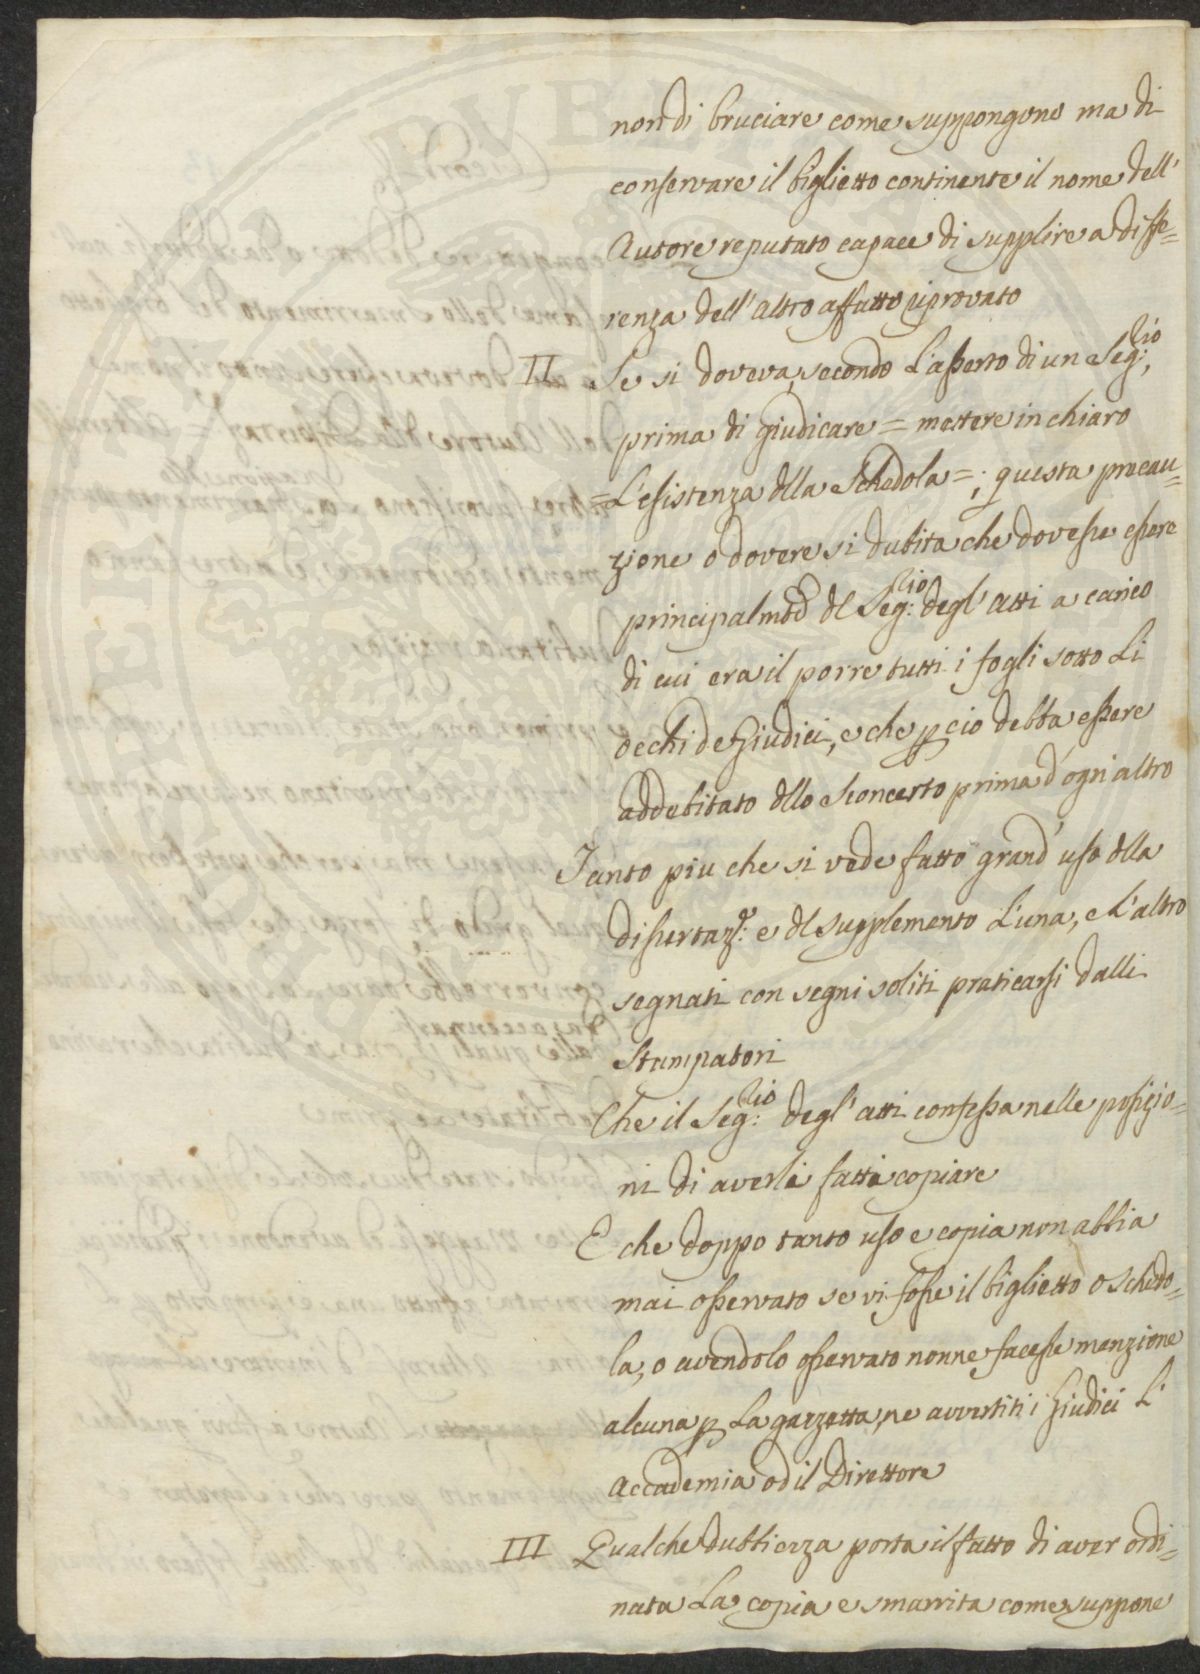 non di bruciare come suppongono ma di
conservare il biglietto continente il nome dell'
Autore reputato capace di supplire a diffe=
renza dell'altro affatto riprovato
II Se si doveva, secondo L'asserto di un Seg:rio,
prima di giudicare = mettere in chiaro
=L'esistenza dlla Schedola =; questa precau=
zione o dovere si dubita che dovesse essere
principalmte dl Seg:rio degl'atti a carico
di cui era il porre tutti i fogli sotto Li
occhi de Giudici, e che p cio debba essere
addebitato dllo sconcerto prima d'ogni altro
Tanto piu che si vede fatto grand'uso dlla
dissertaze: e dl supplemento L'una, e L'altro
segnati con segni soliti praticarsi dalli
Stampatori
Che il Seg:rio degl'atti confessa nelle posizio=
ni di averli fatti copiare
E che doppo tanto uso e copia non abbia
mai osservato se vi fosse il biglietto o schedo=
la, o avendolo osservato non ne facesse menzione
alcuna p La gazzetta, ne avvertiti i Giudici L'
Accademia od il Direttore
III Qualche dubbiezza porta il fatto di aver ordi=
nata La copia e smarrita come suppone